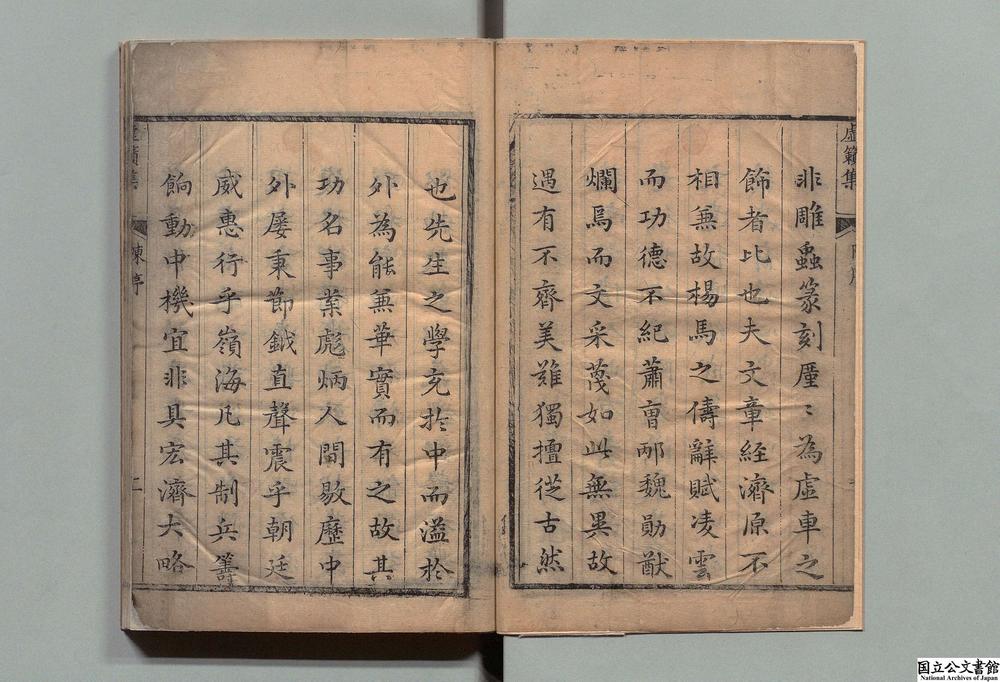 虛籟集
非雕蟲篆刻厪〻為虛車之
飾者比也夫文章經濟原不
相兼故楊馬之儔辭賦凌雲
而功德不紀蕭曺邴魏勛猷
爛焉而文采蔑如此無異故
遇有不齊美難獨擅從古然
也先生之學充扵中而溢於
外為能兼華實而有之故其
功名事業彪炳人間敭歷中
外屡秉節鉞直聲震乎朝廷
威惠行乎嶺海凡其制兵籌
餉動中機宜非具宏濟大略
陳序
二
国立公文書館
National Archives of Japan